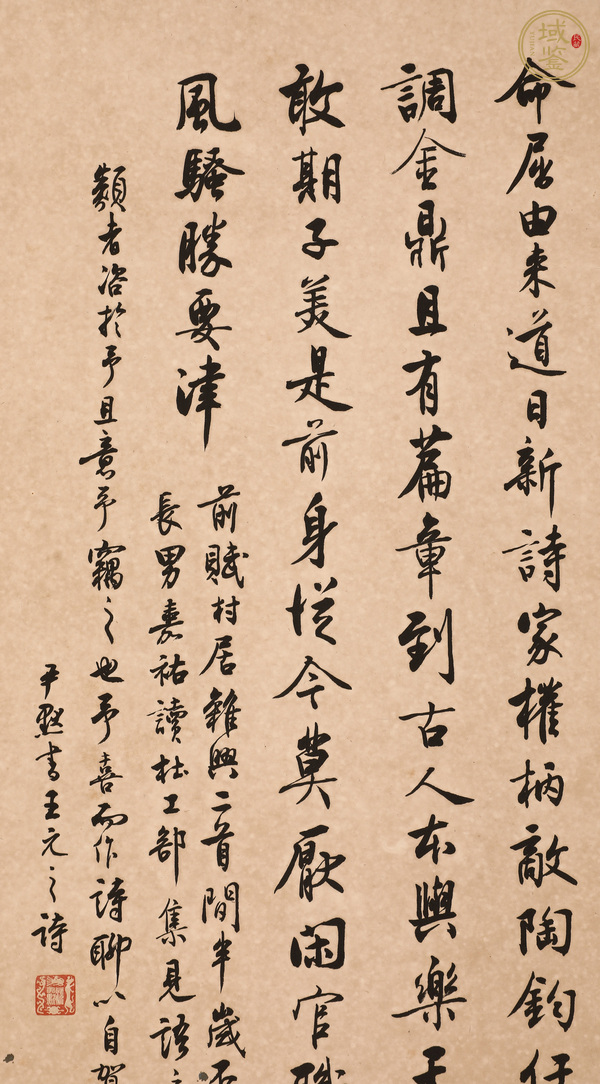 命屈由来道日新詩家權柄敵陶鈞任
調金鼎且有篇章到古人本與樂天
敢期子美是前身從今莫厭閑官職
風騷勝要津
前賦村居雜興二首間半歲不
長男嘉祐讀杜工部集見語之
類者咨於予且意予竊之也予喜而作詩聊以自賀
尹默書王元之詩
域鑒